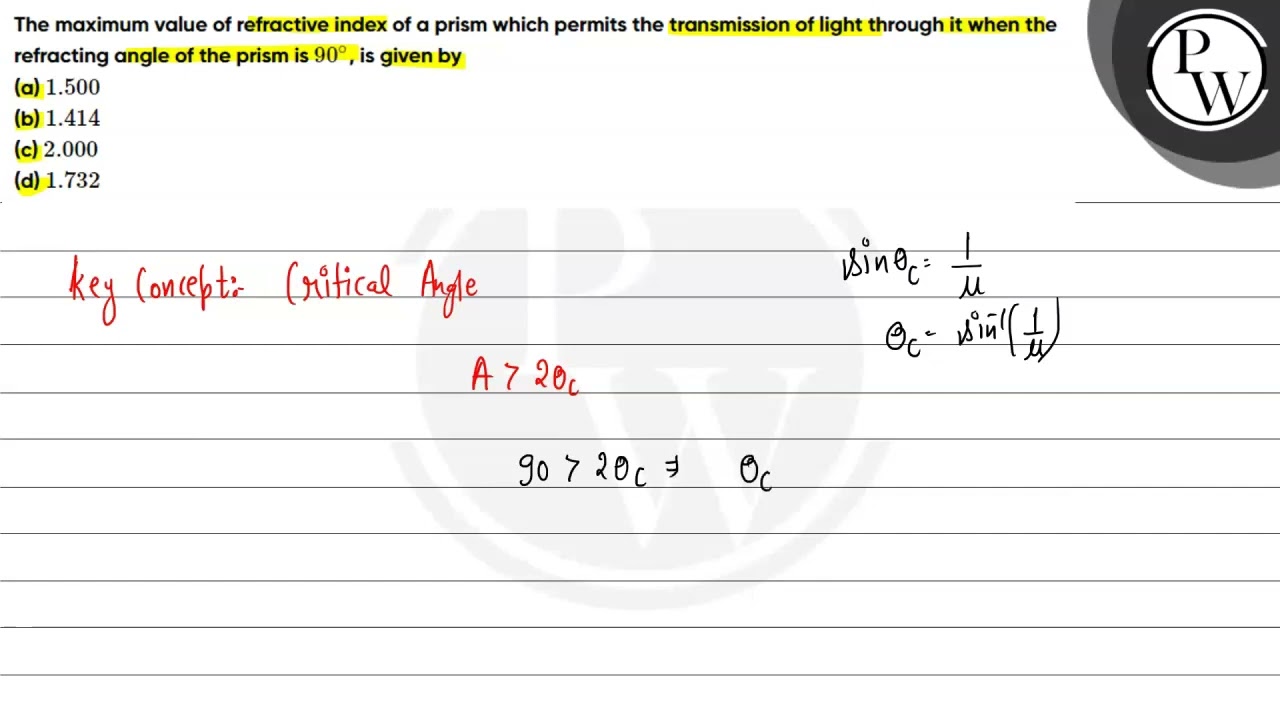 The maximum value of refractive index of a prism which permits the transmission of light through it when the
refracting angle of the prism is 90°, is given by
(a) 1.500
(b) 1.414
(c) 2.000
(d) 1.732
P
W
Key Concept:- Critical Angle
sinθc = 1/μ
θc = sin⁻¹(1/μ)
A > 2θc
90 > 2θc ⇒ θc
PW